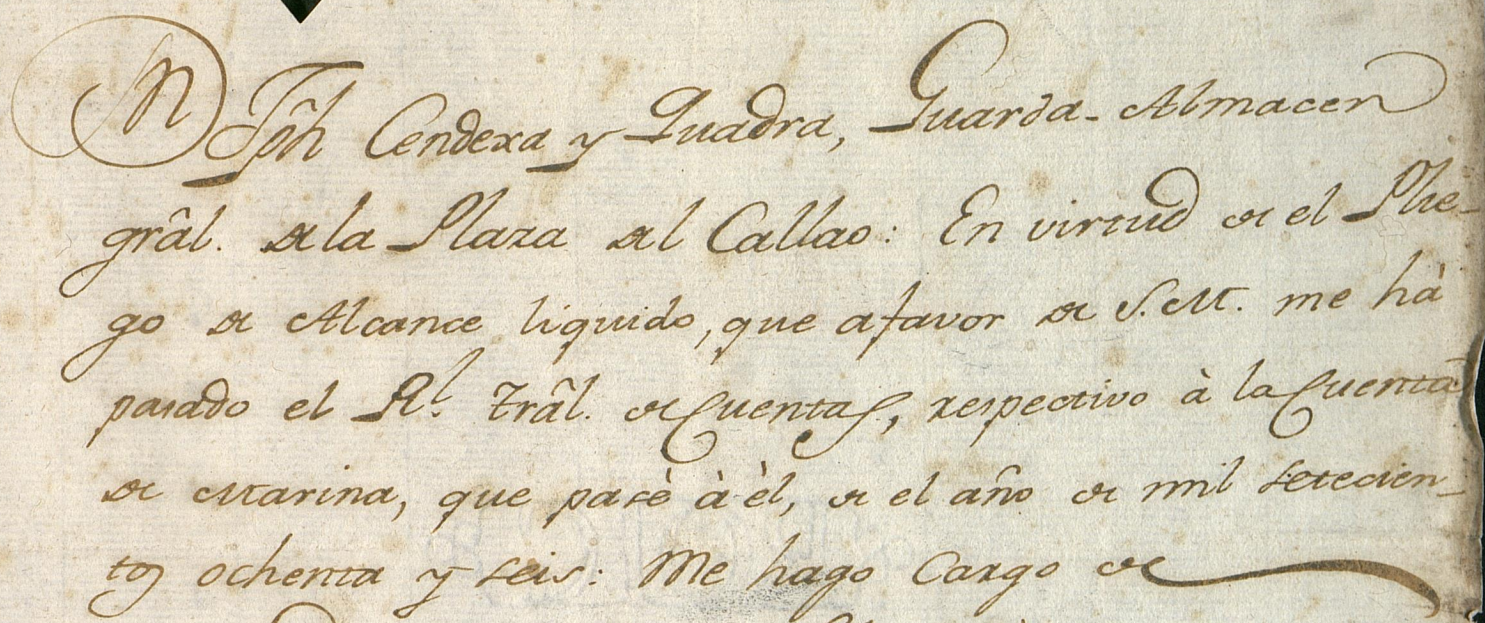 Dn Jph Cendexa y Quadra, Guarda-Almacen
grãl. de la Plaza del Callao: En virtud de el Plie-
go de Alcance liquido, que a favor de S.M. me hà
pasado el Rl. Trãl. de Cuentas, respectivo à la Cuenta
de Marina, que pasè à èl, de el año de mil setecien-
tos ochenta y seis: Me hago Cargo de